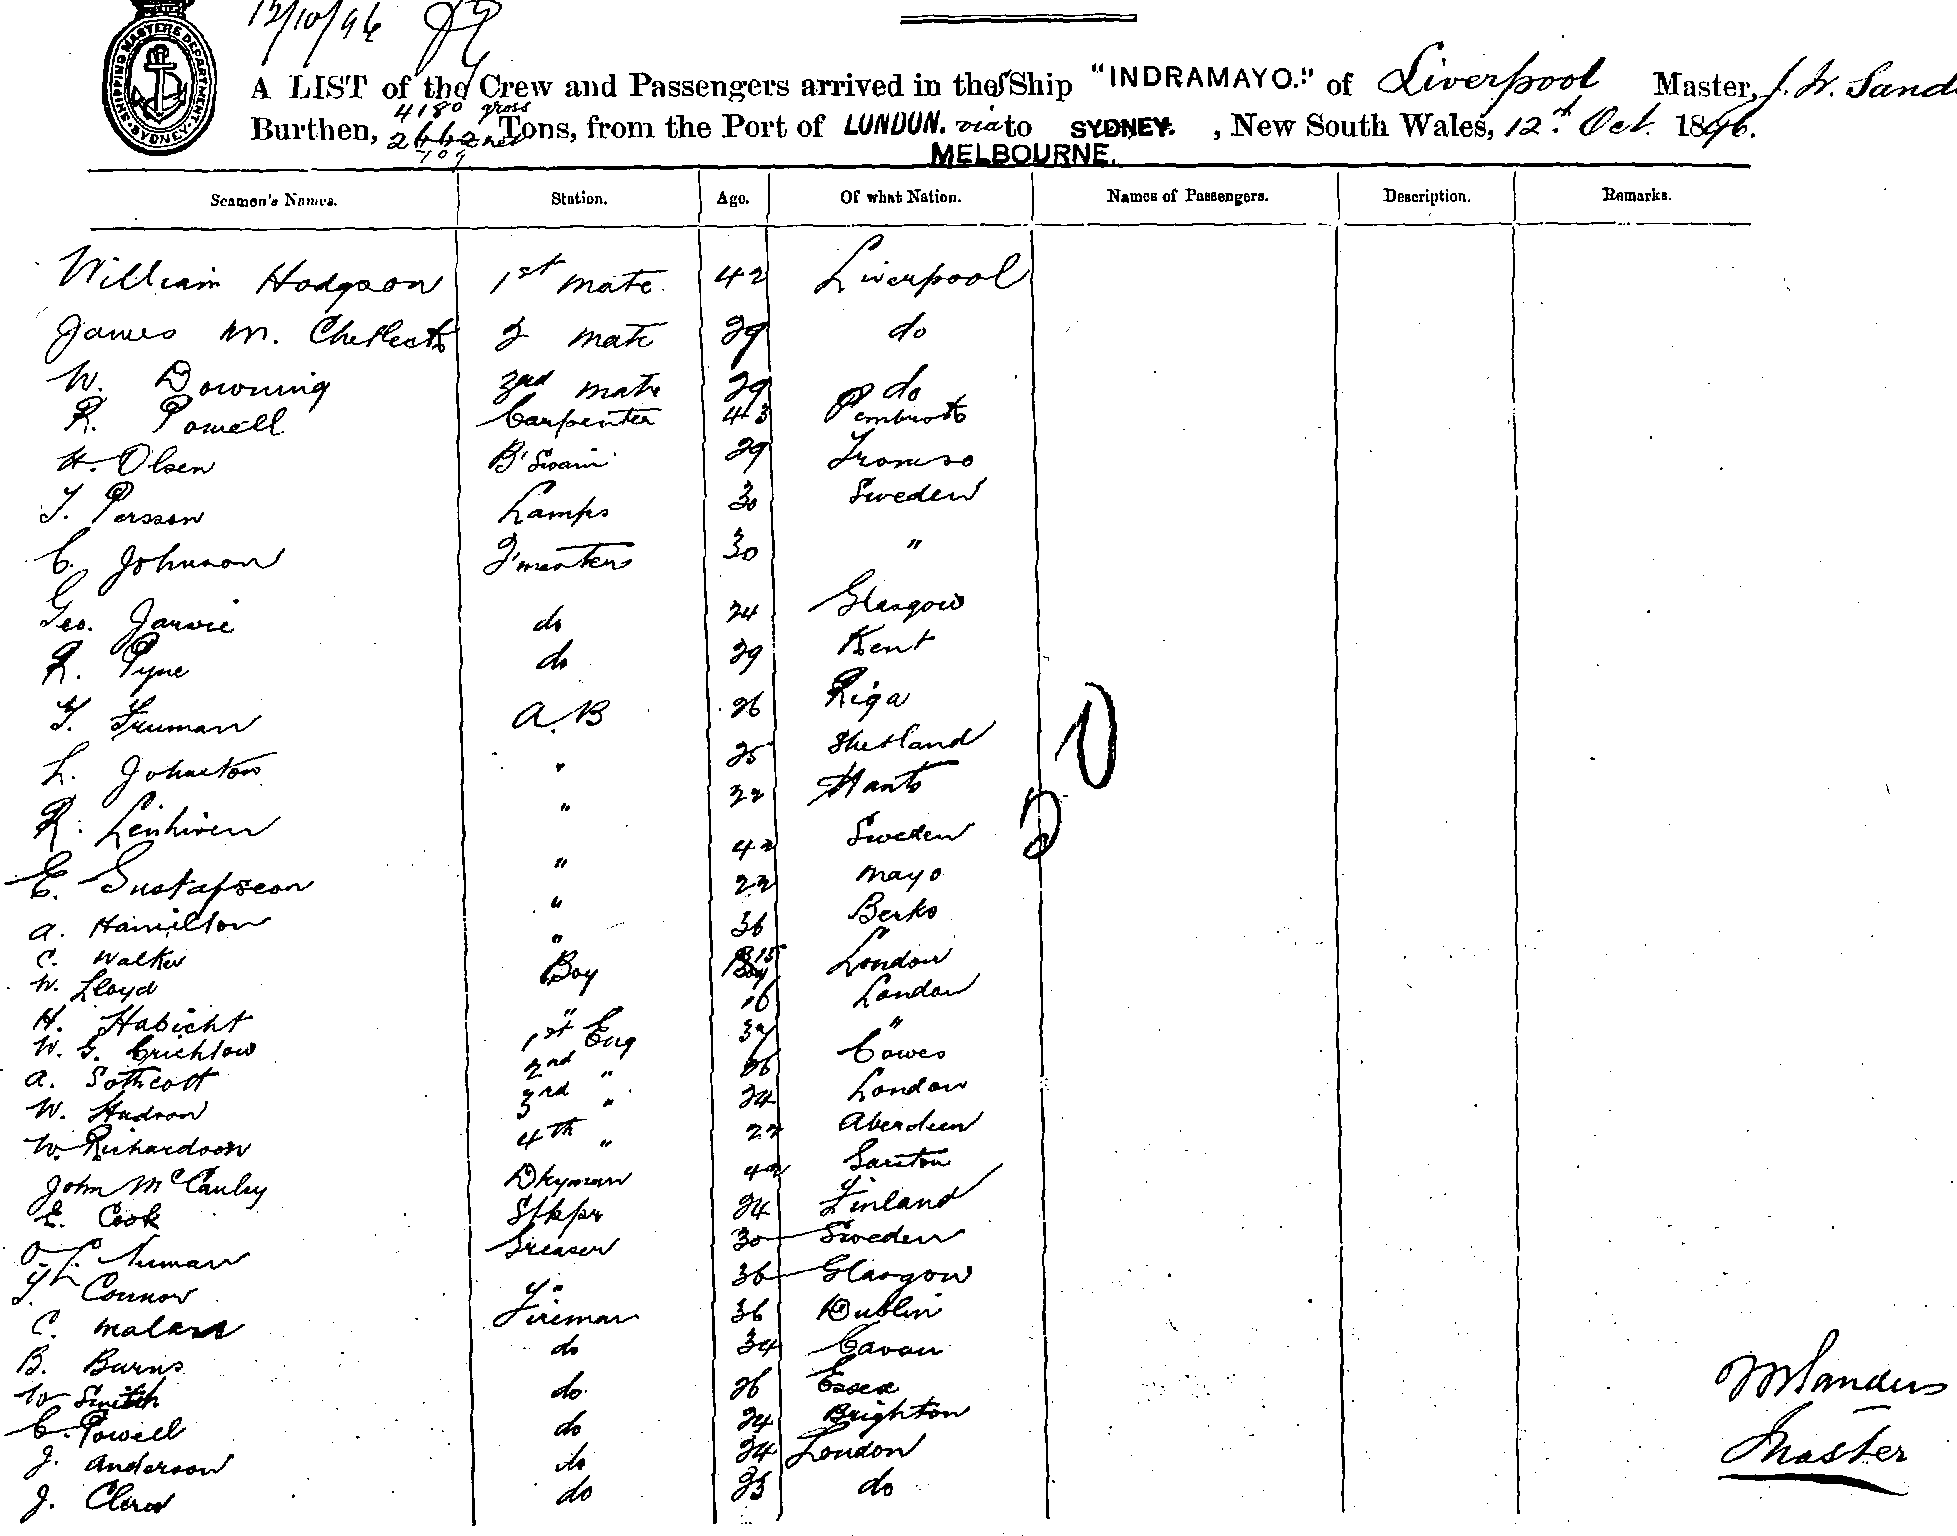 12/10/96
SHIPPING MASTERS DEPARTMENT SYDNEY
A LIST of the Crew and Passengers arrived in the S Ship "INDRAMAYO." of Liverpool Master, J. W. Sand
4180 gross
Burthen, 2662 net Tons, from the Port of LONDON. via to SYDNEY. , New South Wales, 12th Oct. 1896.
MELBOURNE.
Seamen's Names. Station. Age. Of what Nation. Names of Passengers. Description. Remarks.
William Hodgson 1st mate 42 Liverpool
James M. 2 mate 29 do
W. Downing 3rd mate 29 do
R. Powell Carpenter 43 Pembroke
H. Olsen B'Swain 29 Tromso
T. Persson Lamps 30 Sweden
C. Johnson Q'masters 30 "
Geo. Jarvie do 24 Glasgow
R. Pyne do 29 Kent
T. Truman A.B 26 Riga
L. Johnston " 25 Shetland
R. " 22 Hants
E. Gustafsson " 42 Sweden
A. Hamilton " 22 Mayo
C. Walker " 36 Berks
W. Lloyd Boy 15 London
H. Habicht " 16 London
W. G. Crichlow 1st Eng 37 "
A. Sothcott 2nd " 26 Cowes
W. Hudson 3rd " 24 London
W. Richardson 4th " 22 Aberdeen
John McCauley Dkyman 42
E. Cook Stkpr 24 Finland
O. L. Numan Greaser 30 Sweden
T. Connor 36 Glasgow
C. Fireman 36 Dublin
B. Burns do 34 Cavan
W Smith do 26 Essex
C. Powell do 24 Brighton
J. Anderson do 24 London
J. do 25 do
Sanders
Master